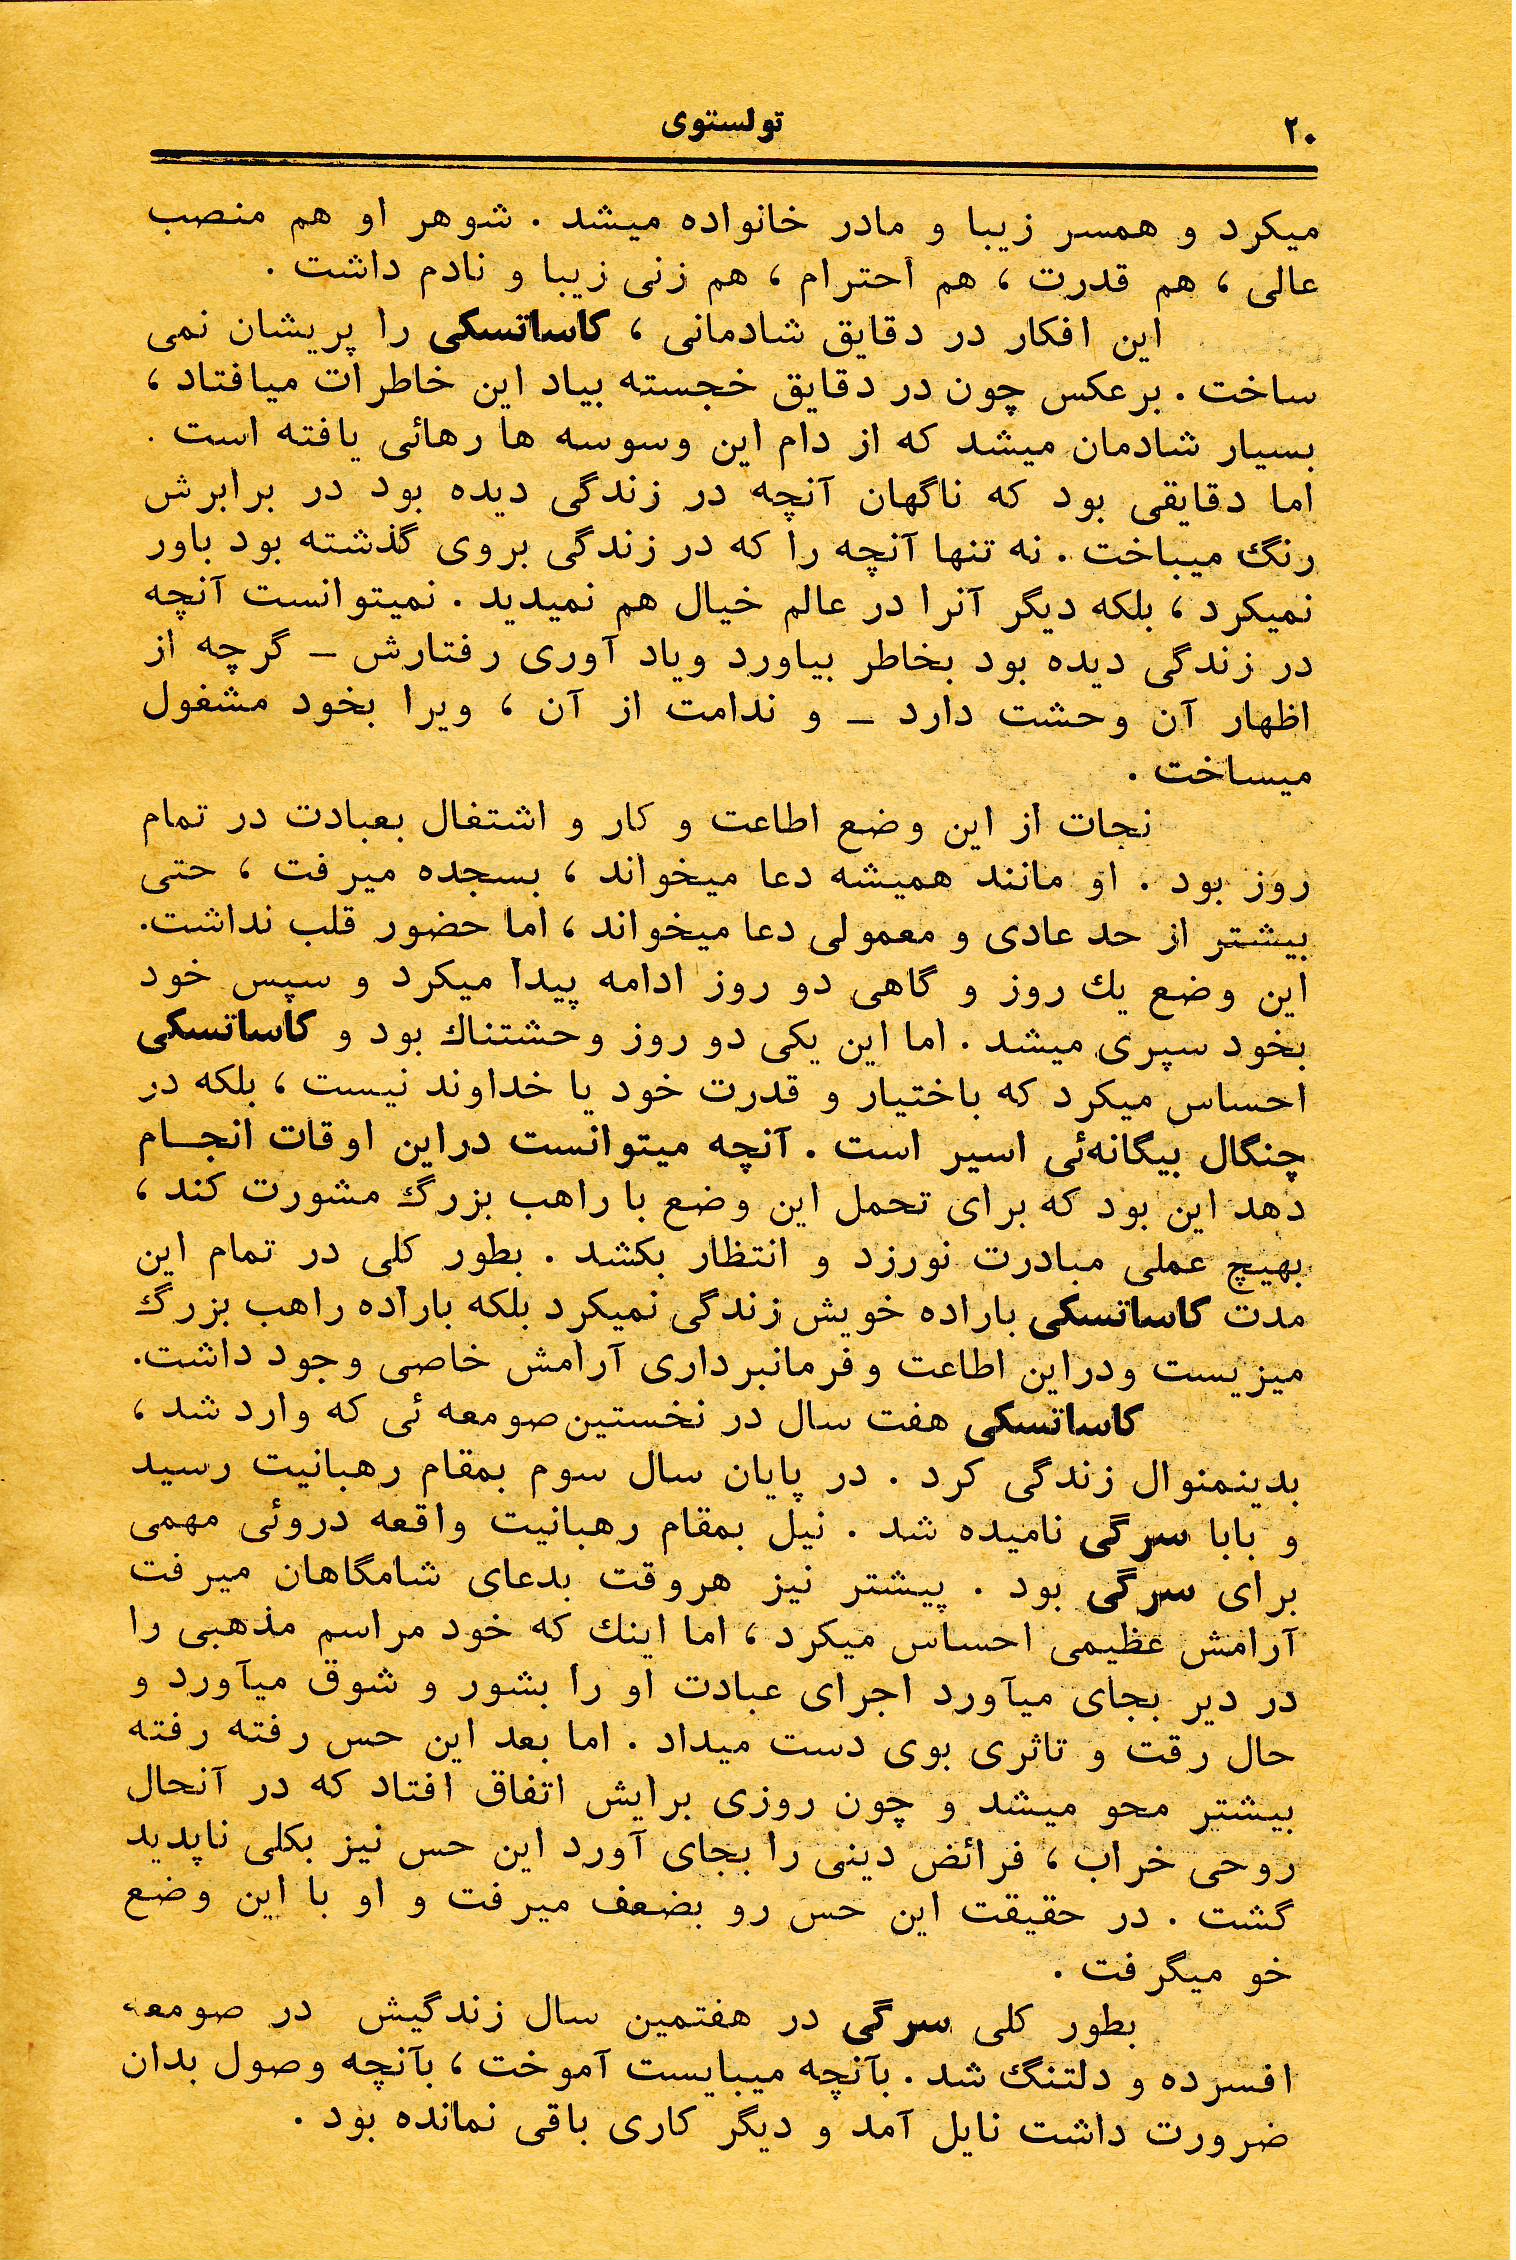 ۲۰
تولستوی
میکرد و همسر زیبا و مادر خانواده میشد . شوهر او هم منصب
عالی ، هم قدرت ، هم احترام ، هم زنی زیبا و نادم داشت .
این افکار در دقایق شادمانی ، کاساتسکی را پریشان نمی
ساخت . برعکس چون در دقایق خجسته بیاد این خاطرات میافتاد ،
بسیار شادمان میشد که از دام این وسوسه ها رهائی یافته است .
اما دقایقی بود که ناگهان آنچه در زندگی دیده بود در برابرش
رنگ میباخت . نه تنها آنچه را که در زندگی بروی گذشته بود باور
نمیکرد ، بلکه دیگر آنرا در عالم خیال هم نمیدید . نمیتوانست آنچه
در زندگی دیده بود بخاطر بیاورد ویاد آوری رفتارش – گرچه از
اظهار آن وحشت دارد – و ندامت از آن ، ویرا بخود مشغول
میساخت .
نجات از این وضع اطاعت و کار و اشتغال بعبادت در تمام
روز بود . او مانند همیشه دعا میخواند ، بسجده میرفت ، حتی
بیشتر از حد عادی و معمولی دعا میخواند ، اما حضور قلب نداشت.
این وضع یك روز و گاهی دو روز ادامه پیدا میکرد و سپس خود
بخود سپری میشد . اما این یکی دو روز وحشتناك بود و کاساتسکی
احساس میکرد که باختیار و قدرت خود یا خداوند نیست ، بلکه در
چنگال بیگانه‌ئی اسیر است . آنچه میتوانست دراین اوقات انجـــام
دهد این بود که برای تحمل این وضع با راهب بزرگ مشورت کند ،
بهیچ عملی مبادرت نورزد و انتظار بکشد . بطور کلی در تمام این
مدت کاساتسکی باراده خویش زندگی نمیکرد بلکه باراده راهب بزرگ
میزیست ودراین اطاعت وفرمانبرداری آرامش خاصی وجود داشت.
کاساتسکی هفت سال در نخستین صومعه ئی که وارد شد ،
بدینمنوال زندگی کرد . در پایان سال سوم بمقام رهبانیت رسید
و بابا سرگی نامیده شد . نیل بمقام رهبانیت واقعه دروئی مهمی
برای سرگی بود . پیشتر نیز هروقت بدعای شامگاهان میرفت
آرامش عظیمی احساس میکرد ، اما اینك که خود مراسم مذهبی را
در دیر بجای میآورد اجرای عبادت او را بشور و شوق میآورد و
حال رقت و تاثری بوی دست میداد . اما بعد این حس رفته رفته
بیشتر محو میشد و چون روزی برایش اتفاق افتاد که در آنحال
روحی خراب ، فرائض دینی را بجای آورد این حس نیز بکلی ناپدید
گشت . در حقیقت این حس رو بضعف میرفت و او با این وضع
خو میگرفت .
بطور کلی سرگی در هفتمین سال زندگیش در صومعه
افسرده و دلتنگ شد . بآنچه میبایست آموخت ، بآنچه وصول بدان
ضرورت داشت نایل آمد و دیگر کاری باقی نمانده بود .